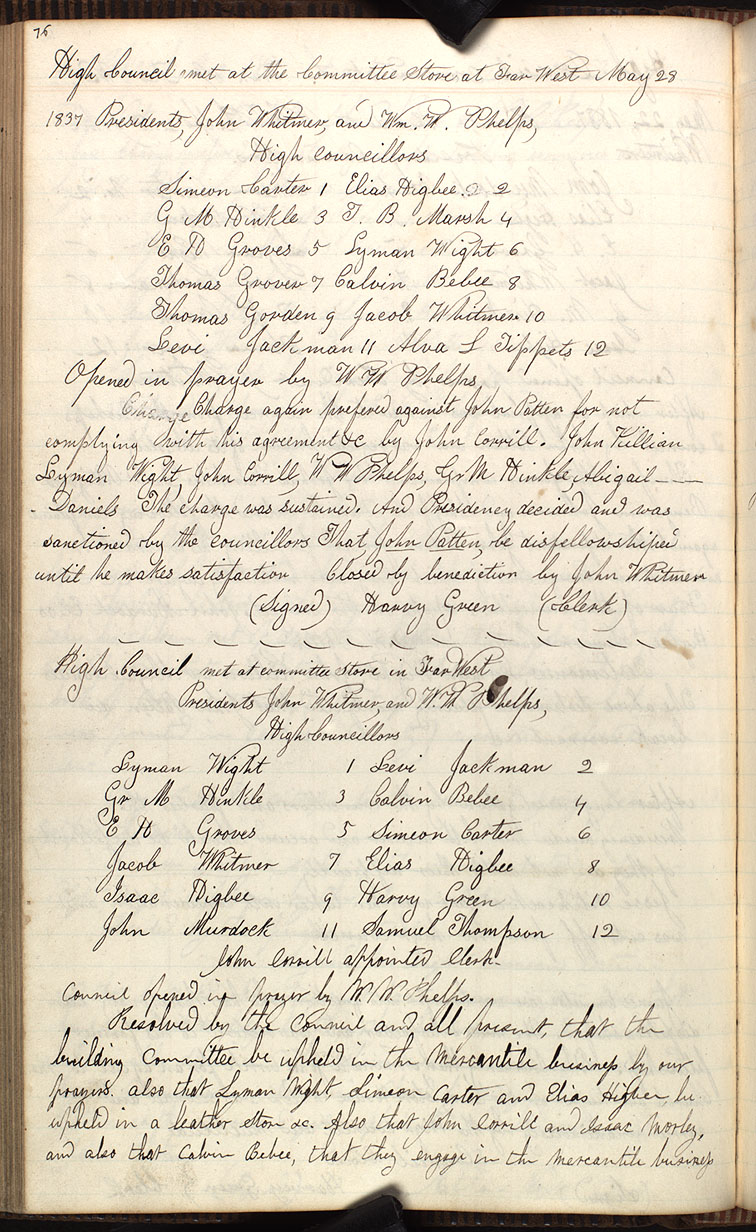 76
High Council met at the Committee Store at Far West May 28
1837 Presidents, John Whitmer, and Wm. W. Phelps,
High councillors
Simeon Carter 1 Elias Higbee. 2 2
G M Hinkle 3 T. B. Marsh 4
E H Groves 5 Lyman Wight 6
Thomas Grover 7 Calvin Bebee 8
Thomas Gorden 9 Jacob Whitmer 10
Levi Jackman 11 Alva L Tippets 12
Opened in prayer by W W Phelps,
Charge Charge again prefered against John Patten for not
complying with his agreement &c by John Corrill. John Killian
Lyman Wight, John Corrill, W W Phelps, Gr M Hinkle, Abigail ——
- Daniels The charge was sustained. And Presidency decided and was
sanctioned by the councillors That John Patten, be disfellowshiped
until he makes satisfaction Closed by benediction by John Whitmer
(Signed) Harvy Green (Clerk)
High Council met at committee store in Far West
Presidents John Whitmer, and W. W. Phelps,
High Councillors
Lyman Wight 1 Levi Jackman 2
Gr M Hinkle 3 Calvin Bebee 4
E H Groves 5 Simeon Carter 6
Jacob Whitmer 7 Elias Higbee 8
Isaac Higbee 9 Harvy Green 10
John Murdock 11 Samuel Thompson 12
John Corrill appointed Clerk-
Council opened in prayer by W. W. Phelps.
Resolved by the council and all present, that the
building committee be upheld in the mercantile business by our
prayers. also that Lyman Wight, Simeon Carter and Elias Higbee be
upheld in a leather store &c. Also that John Corrill and Isaac Morley,
and also that Calvin Bebee, that they engage in the mercantile business